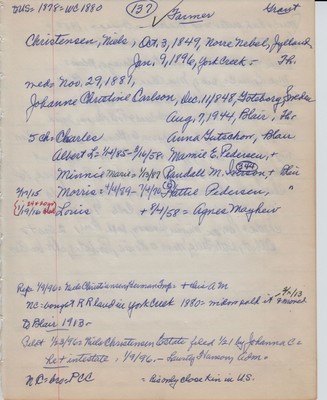 DUS= 1878= WC 1880 (137) Farmer Grant
Christensen, Niels, Oct. 3, 1849, Norre Nebel, Jylland
Jan. 9, 1896, York Creek - Th.
med= Nov. 29, 1881,
Johanne Christine Carlson, Dec. 1/1848, Goteborg, Sweden
Aug. 7, 1944, Blair,
5 ch= Charles Anna Gutschow, Blair
Albert L= 1/4/85= 3/16/58= Mamie E. Pedersen, +
Minnie Marie= 1/3/87 Randell M. Iverson, + Blair
9/7/15 Morris= 4/4/89- 7/4/10 Hattie Pedersen, "
1/19/16 Louis + 8/4/58= Agnes Mayhew
Rep= 1/9/96= Niels Christiansen Herman Twp= + las A.M
NC= bought RR land in York Creek 1880= widow sold it 4/1/13 & moved
To Blair 1913-
Cdst 1/23/96= Niels Christensen Estate filed 1/21 by Johanna C =
he + intestate, 1/9/96. - Lauritz Hanson, Adm=
N C= bro= PCC = his only close kin in U.S.